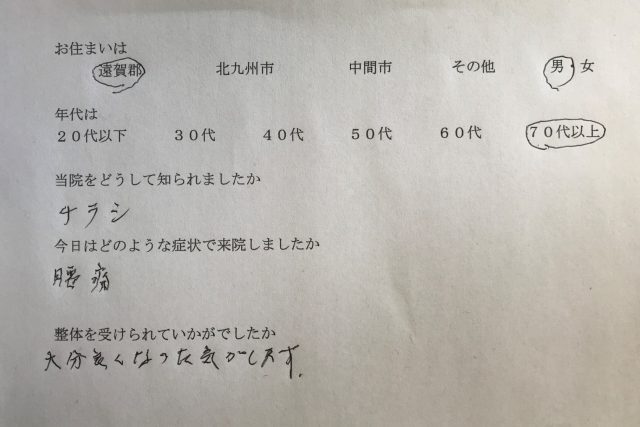 お住まいは
遠賀郡 北九州市 中間市 その他 男・女
年代は
20代以下 30代 40代 50代 60代 70代以上
当院をどうして知られましたか
チラシ
今日はどのような症状で来院しましたか
腰痛
整体を受けられていかがでしたか
大分良くなった気がします。